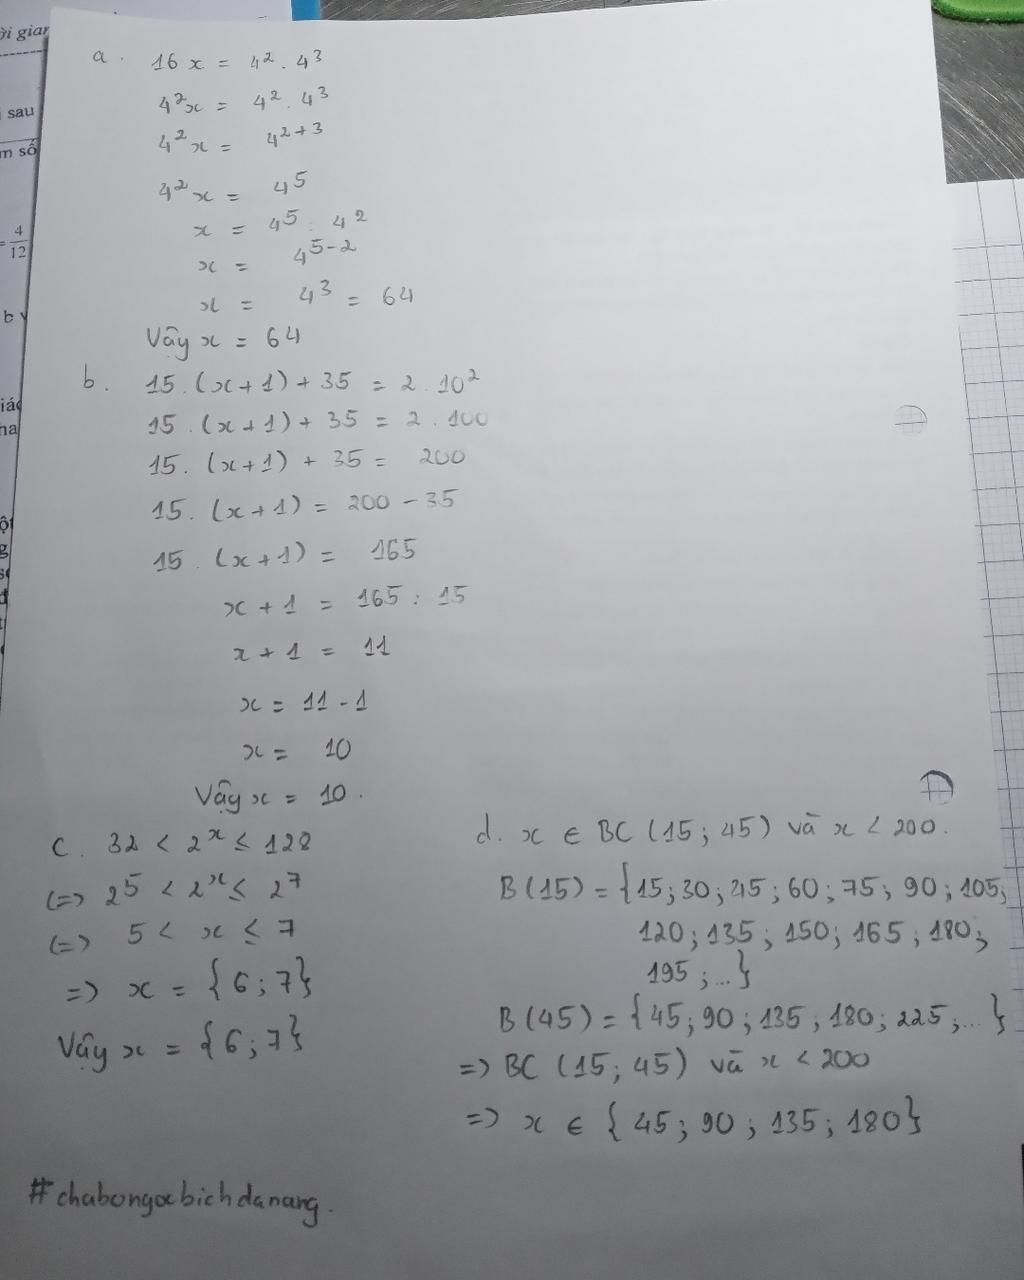 ời gian
sau
m số
= 4/12
b
a. 16x = 4² . 4³
4²x = 4² . 4³
4²x = 4²⁺³
4²x = 4⁵
x = 4⁵ : 4²
x = 4⁵⁻²
x = 4³ = 64
Vậy x = 64
b. 15.(x+1) + 35 = 2.10²
15.(x+1) + 35 = 2.100
15.(x+1) + 35 = 200
15.(x+1) = 200 - 35
15.(x+1) = 165
x + 1 = 165 : 15
x + 1 = 11
x = 11 - 1
x = 10
Vậy x = 10.
c. 32 < 2ˣ ≤ 128
(=) 2⁵ < 2ˣ ≤ 2⁷
(=) 5 < x ≤ 7
=) x = {6;7}
Vậy x = {6;7}
d. x ∈ BC (15; 45) và x < 200.
B(15) = {15; 30; 45; 60; 75; 90; 105;
120; 135; 150; 165; 180;
195; ...}
B(45) = {45; 90; 135; 180; 225; ...}
=) BC (15; 45) và x < 200
=) x ∈ {45; 90; 135; 180}
#chabongocbichdanang.